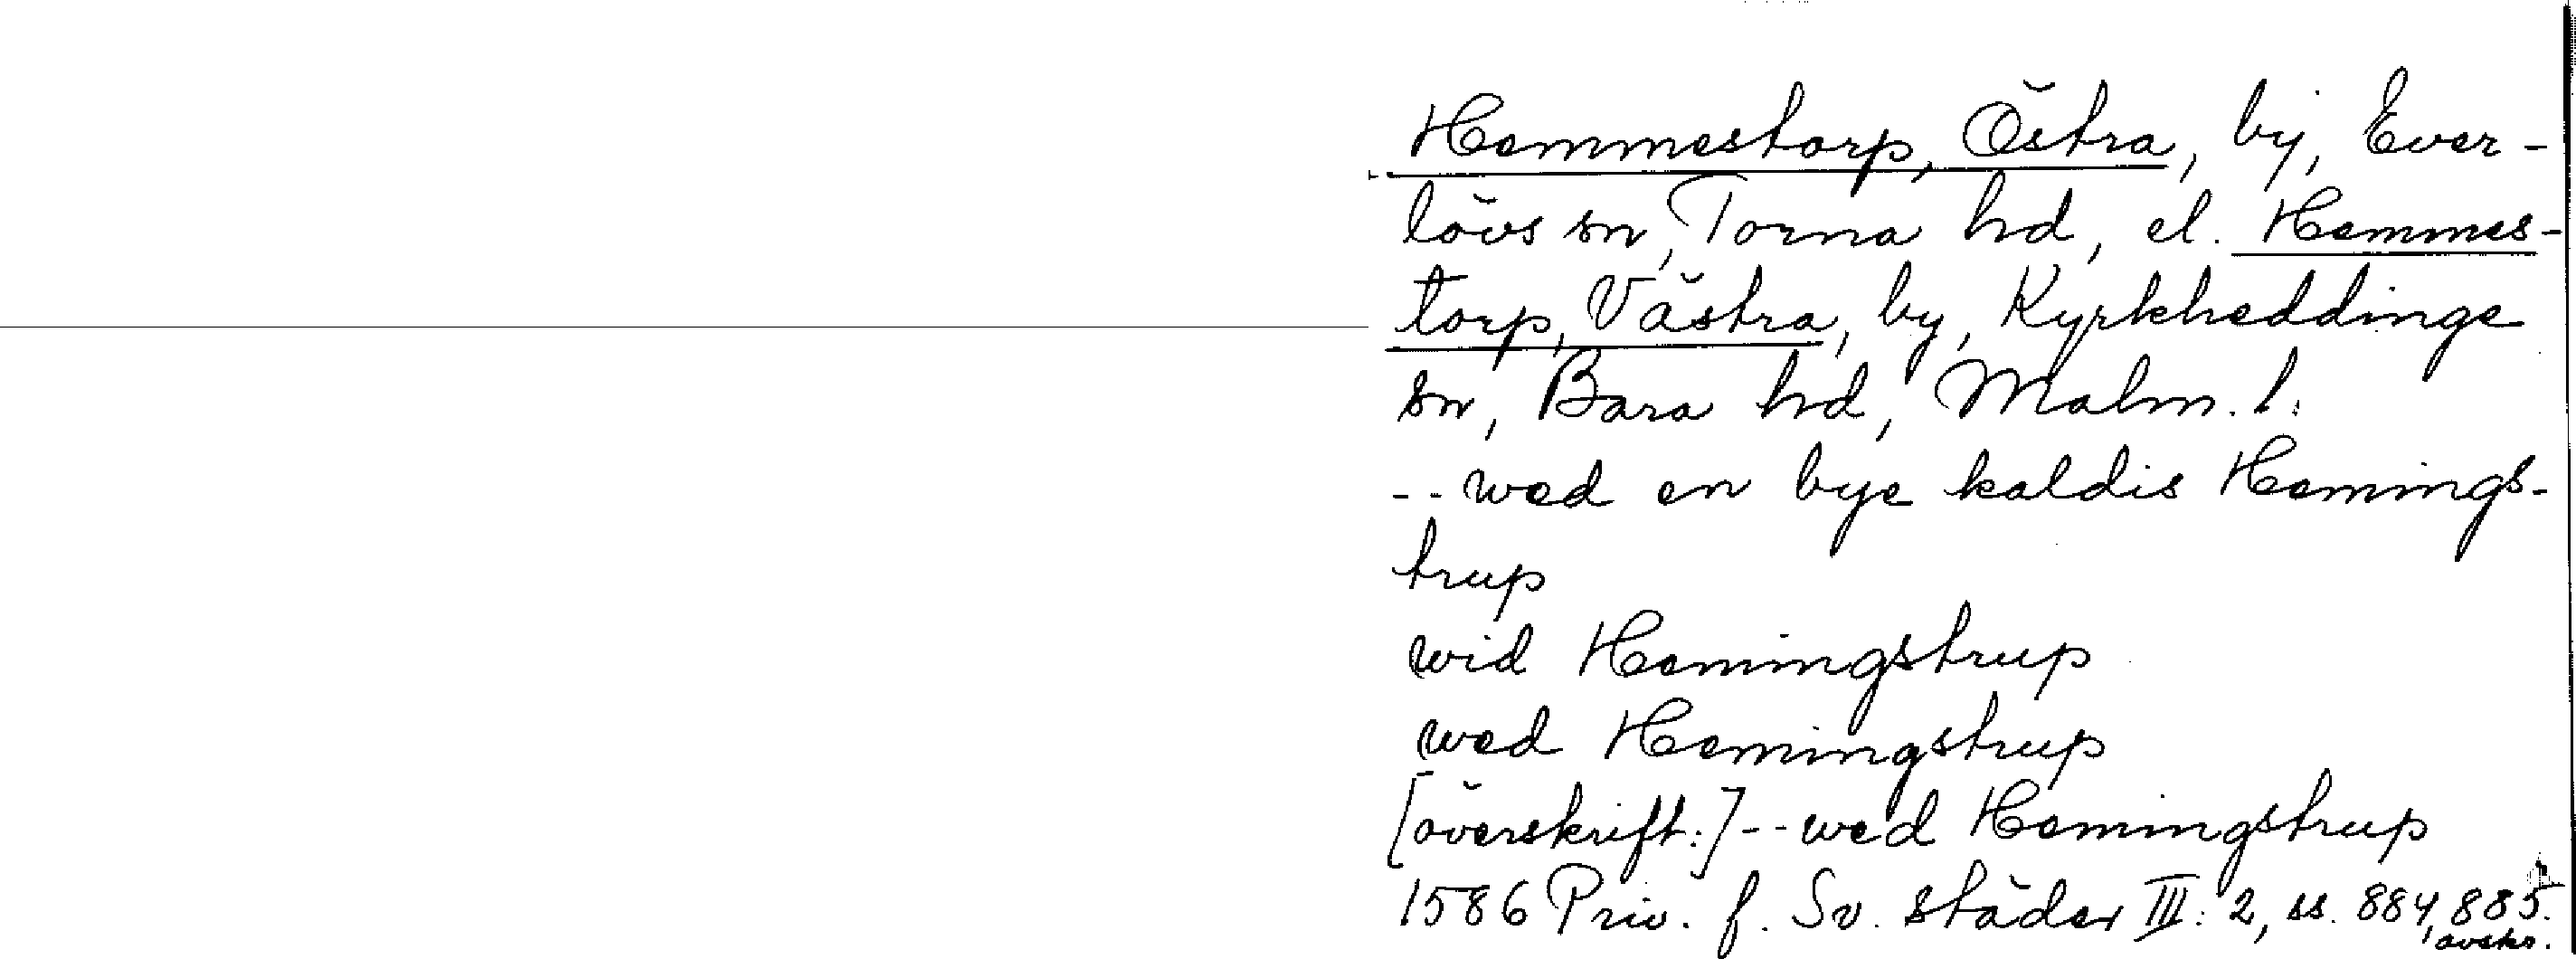 Hemmestorp, Östra, by, Ever-
lövs sn, Torna hd, el. Hemmes-
torp, Västra, by, Kyrkheddinge
sn, Bara hd, Malm. l.
-- wed en bye kaldis Hemings-
trup
wid Hemingstrup
wed Hemingstrup
[överskrift:] -- wed Hemingstrup
1586 Priv. f. Sv. städer III: 2, ss. 884, 885.
avskr.